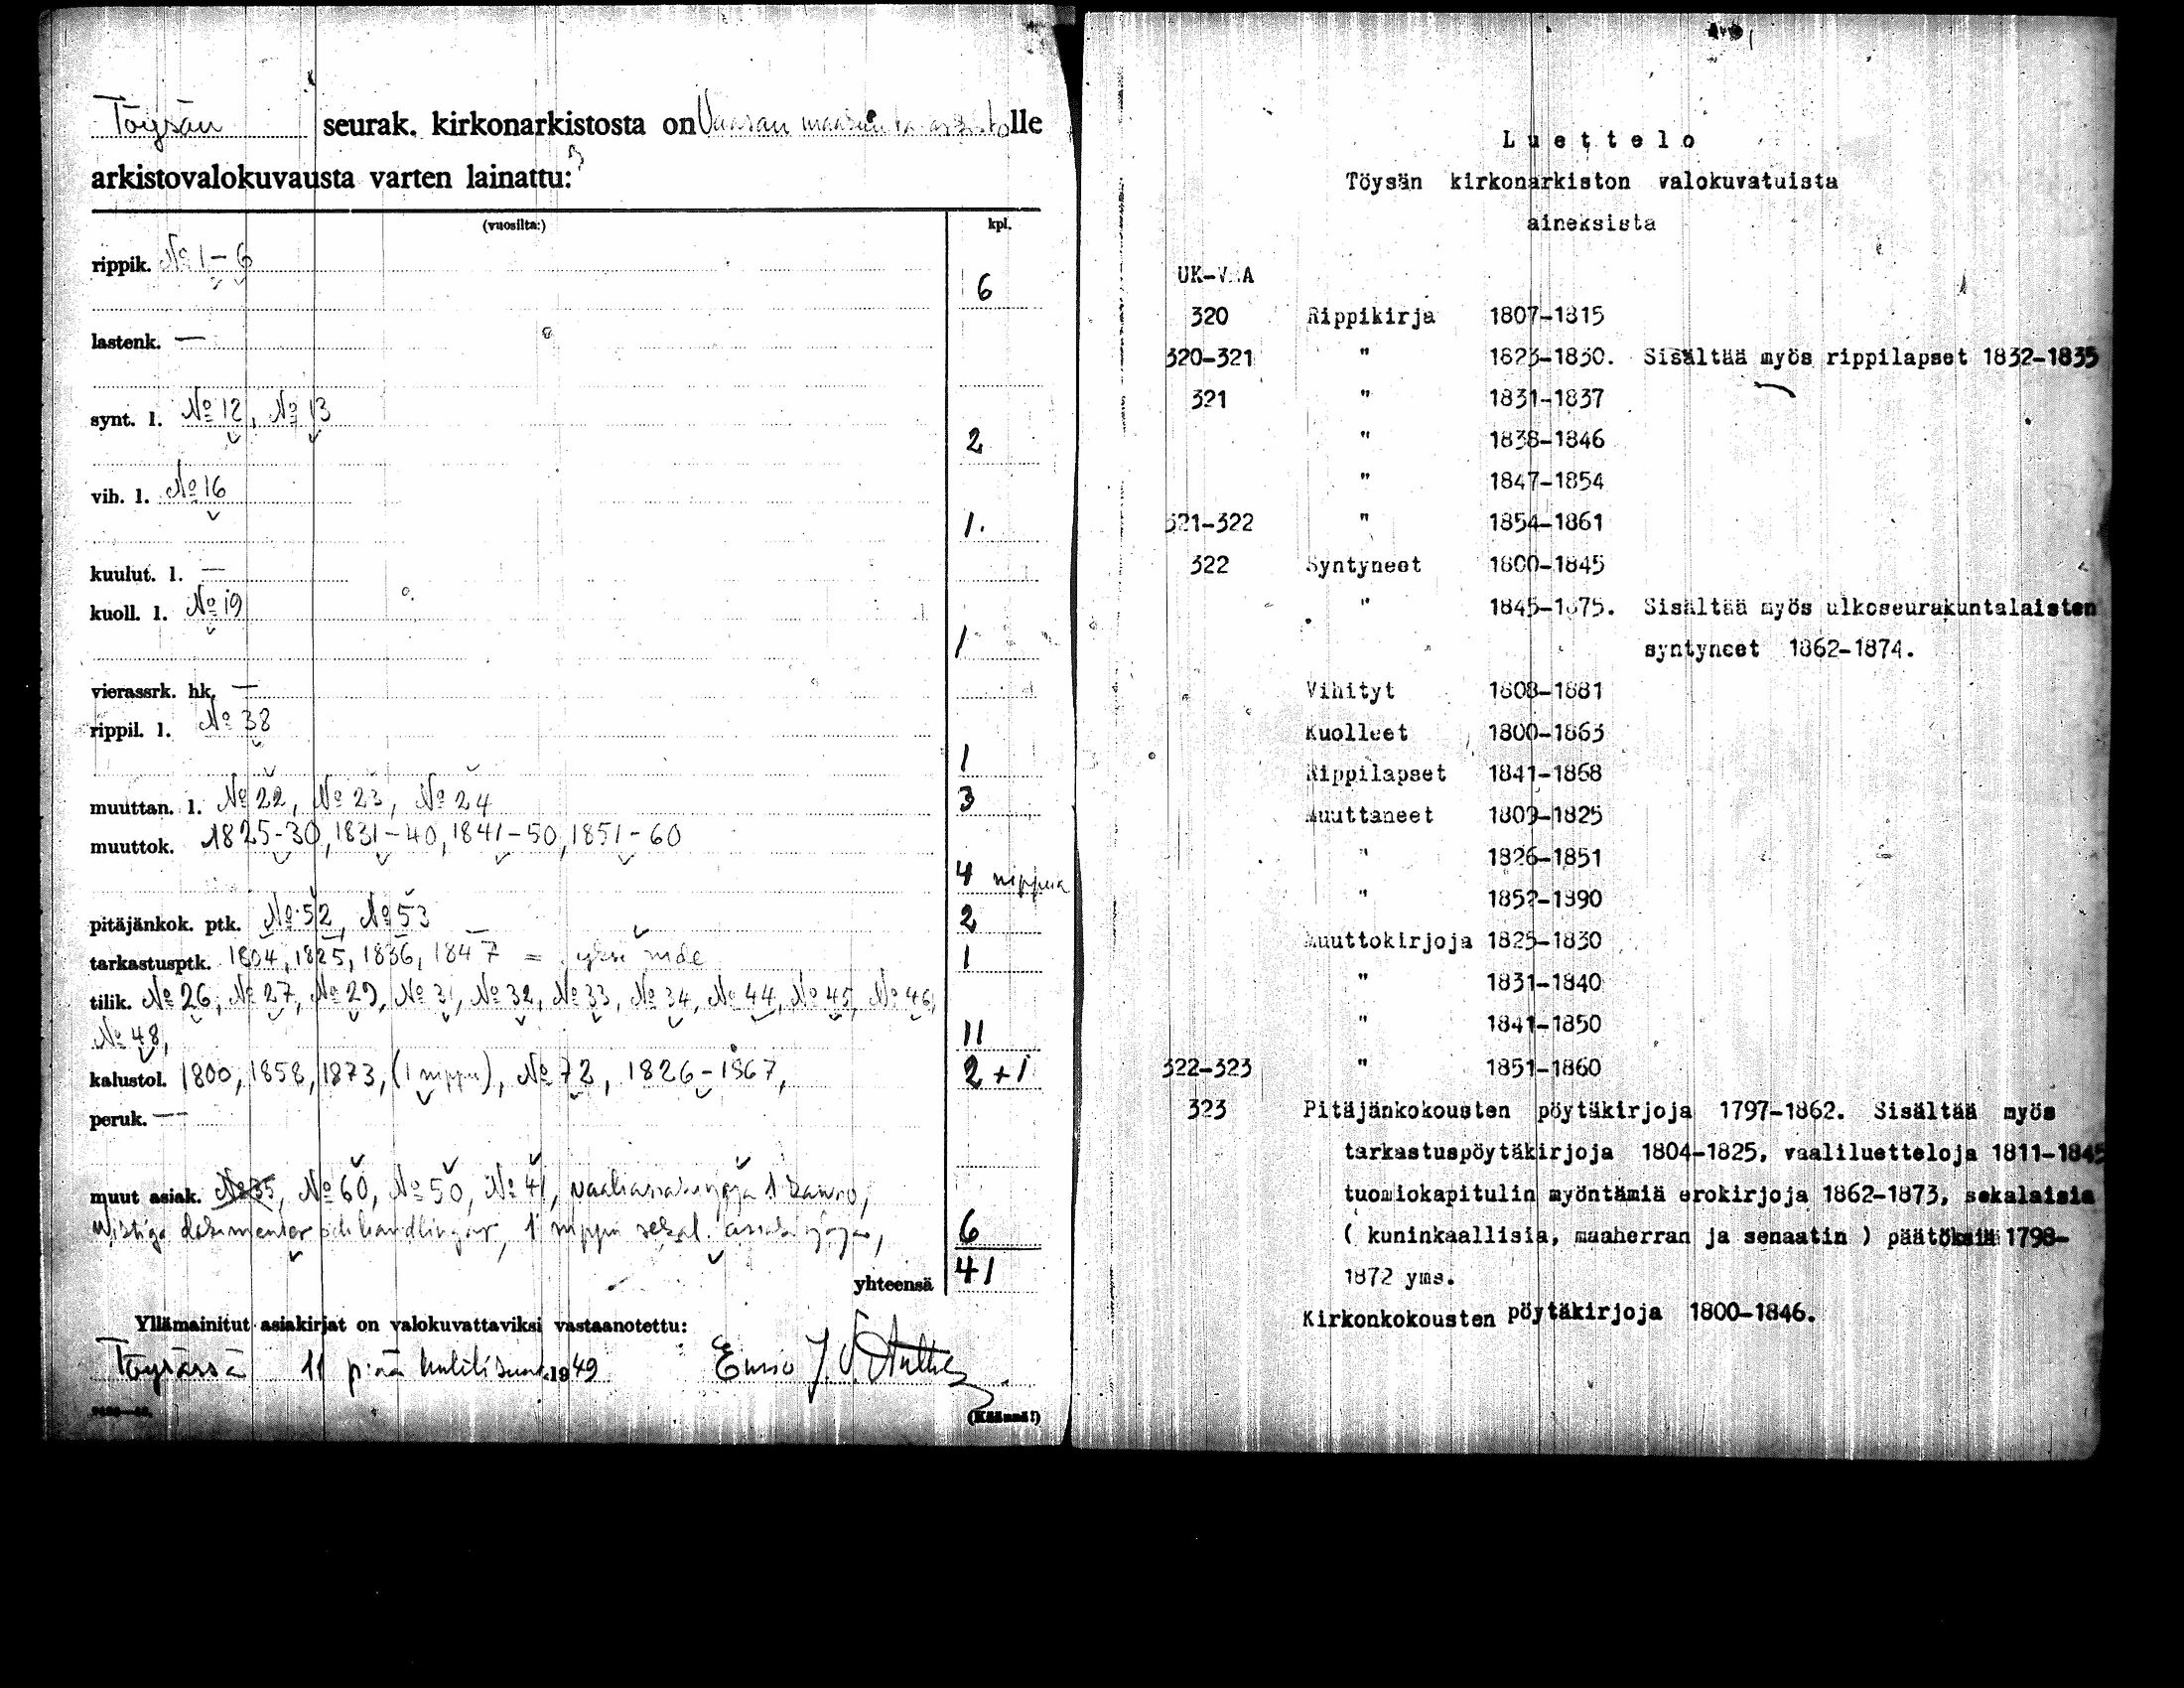 Töysän seurak. kirkonarkistosta on Vaasan maakunta-arkistolle
arkistovalokuvausta varten lainattu:
(vuosilta:) kpl.
rippik. № 1-6
6
lastenk. —
synt. l. № 12, № 13
2
vih. l. № 16
1.
kuulut. l. —
kuoll. l. № 19
1
vierassrk. hk. —
rippil. l. № 38
1
muuttan. l. № 22, № 23, № 24 3
muuttok. 1825-30, 1831-40, 1841-50, 1851-60
4 nippua
pitäjänkok. ptk. № 52, № 53 2
tarkastusptk. 1804, 1825, 1836, 1847 = yksi nide 1
tilik. № 26, № 27, № 29, № 31, № 32, № 33, № 34, № 44, № 45, № 46,
№ 48, 11
kalustol. 1800, 1858, 1873, (1 nippu), № 72, 1826-1867, 2+1
peruk. —
muut asiak. № 35, № 60, № 50, № 41, vaaliasiakirjoja 1
dokumenter och handlingar, 1 nippu sekal. asiakirjoja, 6
yhteensä 41
Yllämainitut asiakirjat on valokuvattaviksi vastaanotettu:
Töysässä 11 p:nä huhtikuun 1949
(Käännä!)
Luettelo
Töysän kirkonarkiston valokuvatuista
aineksista
UK-VMA
320 Rippikirja 1807-1815
320-321 " 1823-1830. Sisältää myös rippilapset 1832-1835
321 " 1831-1837
" 1838-1846
" 1847-1854
321-322 " 1854-1861
322 Syntyneet 1800-1845
" 1845-1875. Sisältää myös ulkoseurakuntalaisten
syntyneet 1862-1874.
Vihityt 1808-1881
Kuolleet 1800-1863
Rippilapset 1841-1868
Muuttaneet 1809-1825
" 1826-1851
" 1852-1890
Muuttokirjoja 1825-1830
" 1831-1840
" 1841-1850
322-323 " 1851-1860
323 Pitäjänkokousten pöytäkirjoja 1797-1862. Sisältää myös
tarkastuspöytäkirjoja 1804-1825, vaaliluetteloja 1811-1845
tuomiokapitulin myöntämiä erokirjoja 1862-1873, sekalaisia
( kuninkaallisia, maaherran ja senaatin ) päätöksiä 1798-
1872 yms.
Kirkonkokousten pöytäkirjoja 1800-1846.